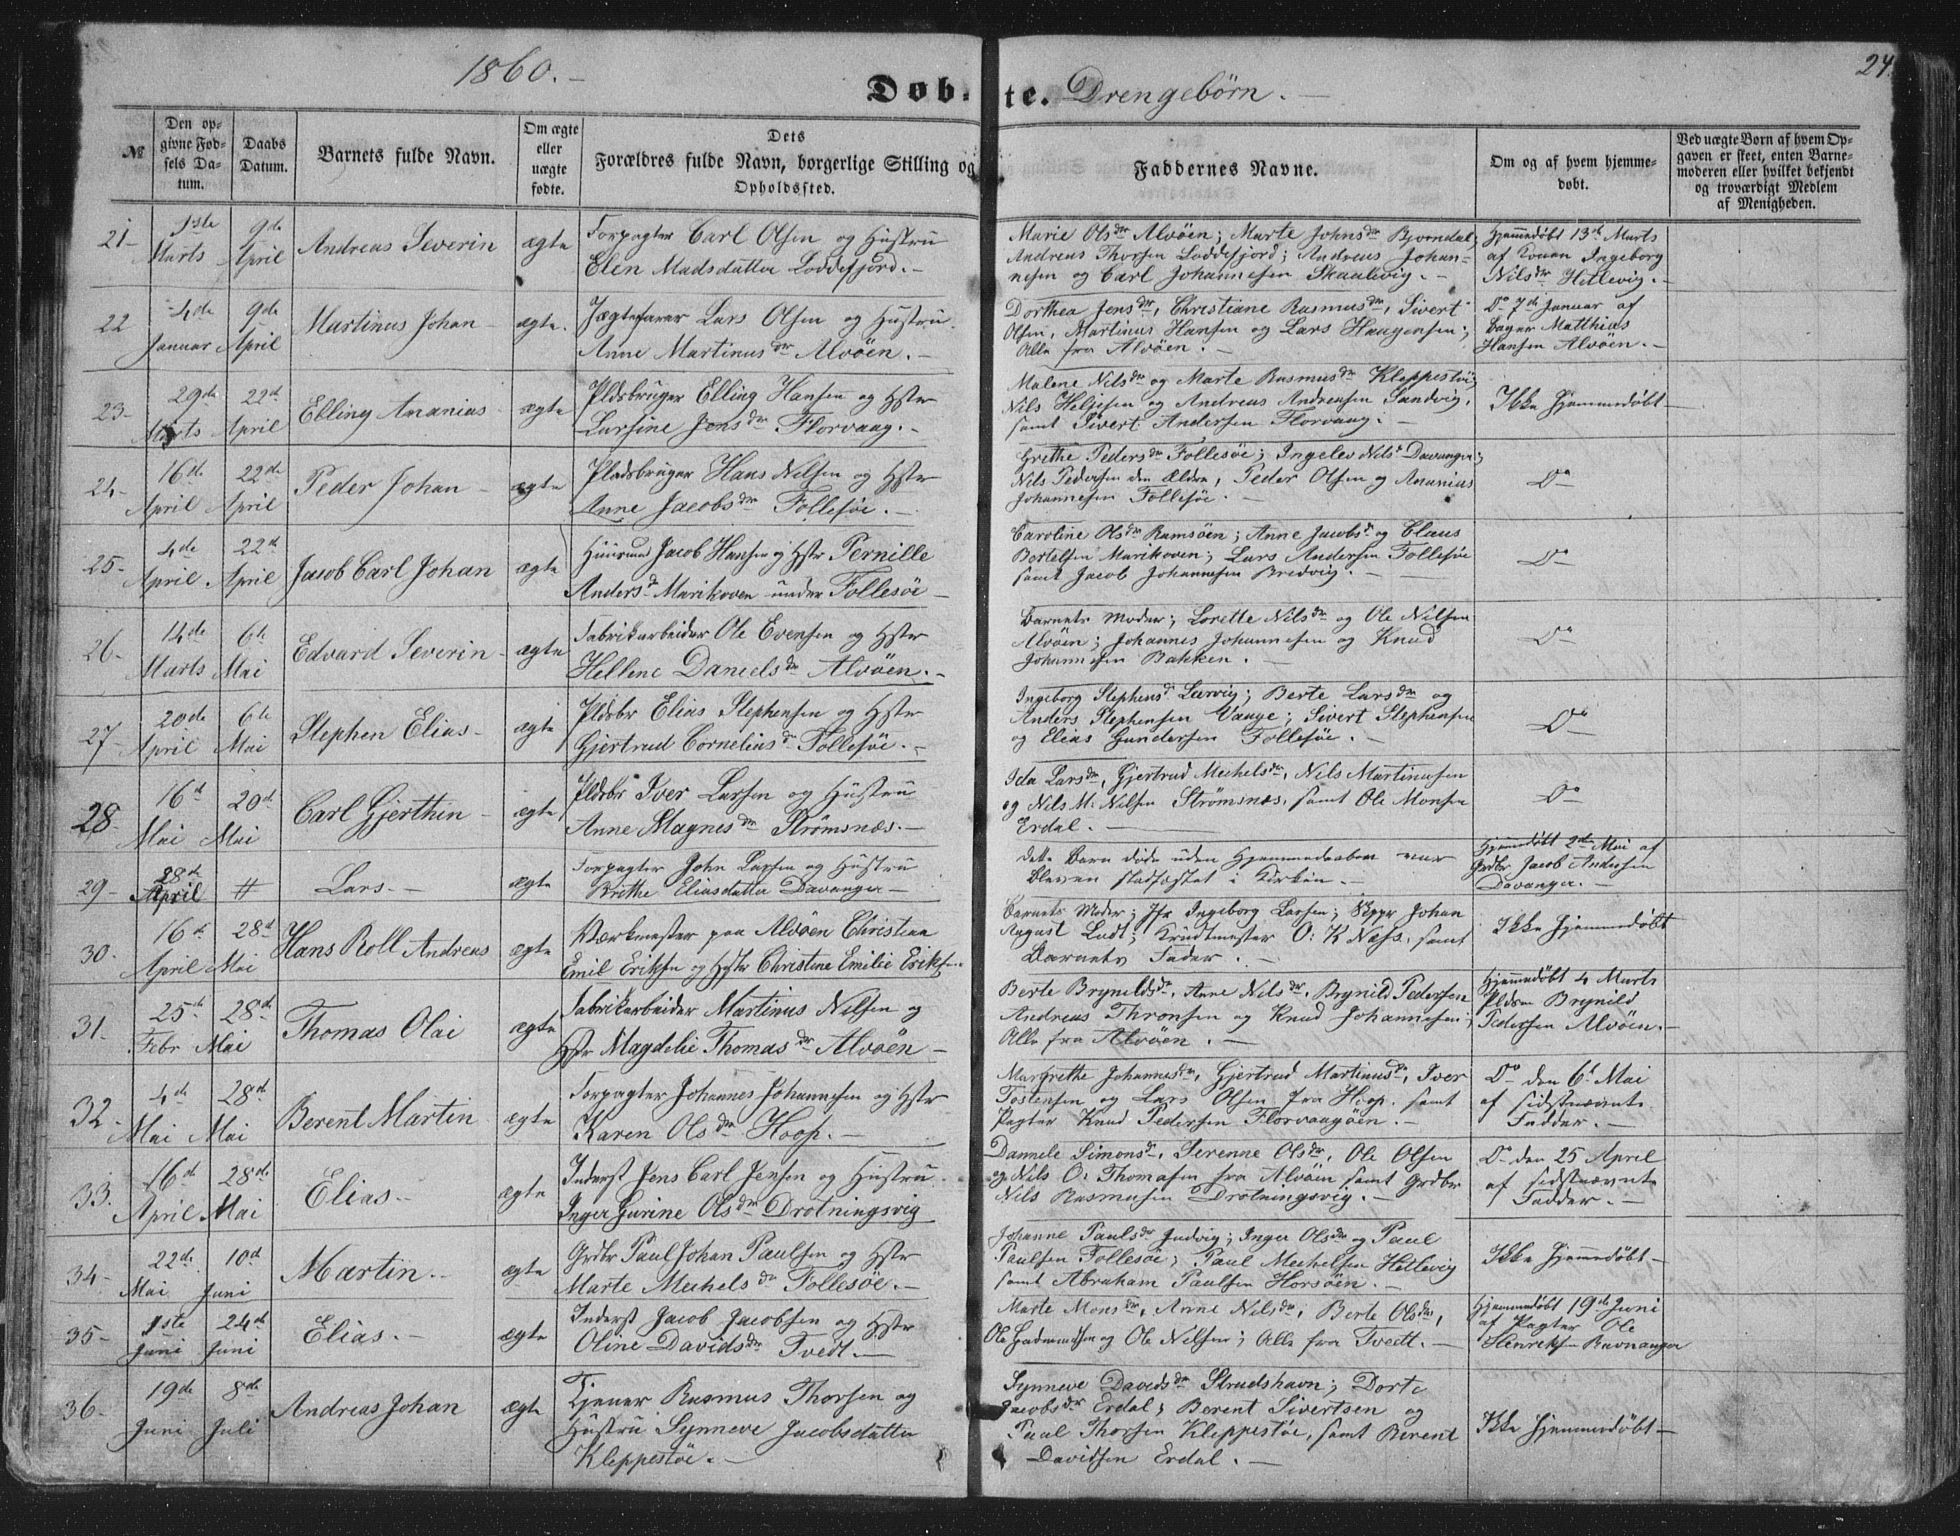 1860. -
24.
Døb-te. Drengebørn. -
No
Den opgivne Fødsels Datum.
Daabs Datum.
Barnets fulde Navn.
Om ægte eller uægte fødte.
Dets Forældres fulde Navn, borgerlige Stilling og Opholdssted.
Faddernes Navne.
Om og af hvem hjemmedøbt.
Ved uægte Børn af hvem Opgaven er skeet, enten Barnemoderen eller hvilket bekjendt og troværdigt Medlem af Menigheden.
21- 1ste Marts 9de April Andreas Severin ægte
Forpagter Carl Olsen og Hustru
Elen Madsdatter Loddefjord. -
Marie Olsdr Alvøen; Marte Johnsdr Bjorndal;
Andreas Thorsen Loddefjord; Andreas Johan-
nesen og Carl Johannesen Skaalevig. -
Hjemmedøbt 13de Marts
af Konen Ingeborg
Nilsdr Hillevig. -
22 4de Januar 9de April Martinus Johan - ægte.
Jægtefarer Lars Olsen og Hustru
Anne Martinusdr Alvøen. -
Dorthea Jensdr, Christiane Rasmusdr, Sivert
Olsen, Martinus Hansen og Lars Haagensen;
Alle fra Alvøen. -
Do 7de Januar af
Bager Matthias
Hansen Alvøen. -
23- 29de Marts 22de April Elling Ananias - ægte
Pldsbruger Elling Hansen og Hstr
Larsine Jensdr Florvaag. -
Malene Nilsdr og Marte Rasmusdr Kleppestøe;
Nils Helgesen og Andreas Andreasen Sandvig,
samt Sivert Andersen Florvaag. -
Ikke Hjemmedøbt -
24- 16de April 22de April Peder Johan - ægte
Pladsbruger Hans Nilsen og Hstr
Anne Jacobsdr Follesøe. -
Grethe Pedersdr Follesøe; Ingelev Nilsd Davanger;
Nils Pedersen den Ældre, Peder Olsen og Ananias
Johannesen Follesøe. -
Do
25- 4de April 22de April Jacob Carl Johan ægte
Huusmd Jacob Hansen og Hstr Pernille
Andersd Marikoven under Follesøe -
Caroline Olsdr Ramsøen; Anne Jacobsd og Claus
Bertelsen Marikoven; Lars Andersen Follesøe
samt Jacob Johannesen Bredvig. -
Do
26- 14de Marts 6te Mai Edvard Severin - ægte
Fabrikarbeider Ole Evensen og Hstr
Hellene Danielsdr Alvøen. -
Barnets Moder; Lorette Nilsdr og Ole Nilsen
Alvøen; Johannes Johannesen og Knud
Johannesen Bakken. -
Do
27- 20de April 6te Mai Stephen Elias - ægte
Pldsbr Elias Stephensen og Hstr
Gjertrud Corneliusd Follesøe. -
Ingeborg Stephensd Leervig; Berte Larsdr og
Anders Stephensen Vaage; Sivert Stephensen
og Elias Gundersen Follesøe. -
Do
28- 16d Mai 20d Mai Carl Gjerthin - ægte
Pldsbr Iver Larsen og Hustru
Anne Magnesdr Strømsnæs. -
Ida Larsdr, Gjertrud Mechelsdr, Nils Martinusen
og Nils M. Nilsen Strømsnæs, samt Ole Monsen
Erdal. -
Do
29- 28d April # Lars. - ægte
Forpagter John Larsen og Hustru
Brithe Eliasdatter Davanger -
Dette Barn døde uden Hjemmedaaben var
bleven stadfæstet i Kirken. -
Hjemmedøbt 2den Mai af
Grdbr Jacob Andersen
Davanger. -
30. 16d April 28d Mai Hans Roll Andreas ægte
Værkmester paa Alvøen Christian
Emil Eriksen og Hstr Christine Emilie Eriksen
Barnets Moder; Jfr Ingeborg Larsen; Skppr Johan
August Ludt; Krudtmester O: K Næss, samt
Barnets Fader. -
Ikke Hjemmedøbt
31. 25d Febr 28d Mai Thomas Olai ægte
Fabrikarbeider Martinus Nilsen og
Hstr Magdelie Thomasdr Alvøen -
Berte Bryneldsdr, Anne Nilsdr, Brynild Pedersen
Andreas Thronsen og Knud Johannesen;
Alle fra Alvøen. -
Hjemmedøbt 4 Marts
Pldsm Brynild
Pedersen Alvøen. -
32. 4de Mai 28d Mai Berent Martin ægte
Forpagter Johannes Johannesen og Hstr
Karen Olsdr Hoop. -
Margrethe Johannesdr, Gjertrud Martinusdr, Iver
Tostensen og Lars Olsen fra Hoop, samt
Pagter Knud Pedersen Florvaagøen. -
Do den 6d Mai
af sidstnævnte
Fadder. -
33. 16d April 28de Mai Elias. - ægte
Inderst Jens Carl Jensen og Hustru
Inger Gurine Olsdr Drotningsvig
Dannele Simonsd, Serenne Olsdr, Ole Olsen
og Nils O: Thomasen fra Alvøen samt Grdbr
Nils Rasmusen Drotningsvig. -
Do den 25 April
af sidstnævnte
Fadder. -
34- 22de Mai 10d Juni Martin. - ægte
Grdbr Paul Johan Paulsen og Hstr
Marte Mechelsdr Follesøe. -
Johanne Paulsdr Indvig; Inger Olsdr og Paul
Paulsen Follesøe; Paul Mechelsen Hellevig
samt Abraham Paulsen Horsøen. -
Ikke Hjemmedøbt -
35- 1ste Juni 24d Juni Elias. - ægte
Inderst Jacob Jacobsen og Hstr
Oline Davidsdr Tvedt. -
Marte Monsdr, Anne Nilsdr, Berte Olsdr,
Ole Gudmundsen og Ole Nilsen; Alle fra Tvedt. -
Hjemmedøbt 19de Juni
af Pagter Ole
Henriksen Ravnanger
36- 19de Juni 8de Juli Andreas Johan ægte
Tjener Rasmus Thorsen og
Hustru Synneve Jacobsdatter
Kleppestøe. -
Synneve Davidsdr Strudshavn; Dorte
Jacobsdr Erdal; Berent Sivertsen og
Paul Thorsen Kleppestøe, samt Berent
Davidsen Erdal. -
Ikke Hjemmedøbt -